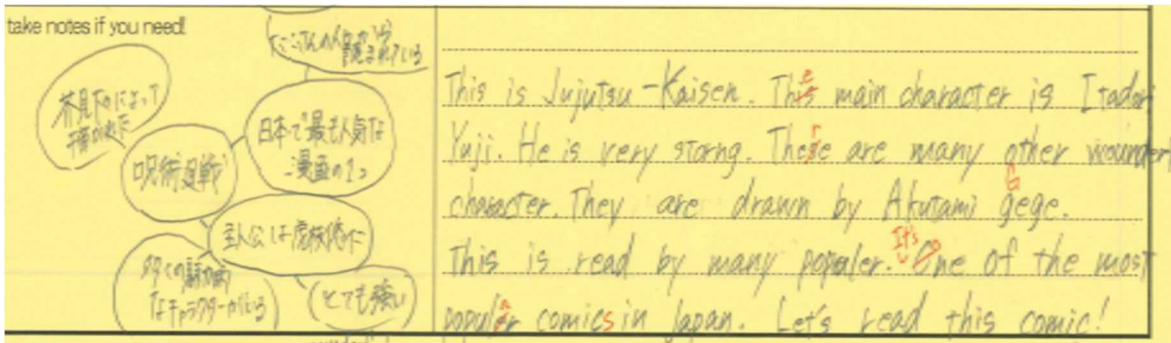 take notes if you need!
たくさんの人から
読まれている
芥見下々によって
日本で最も人気な
漫画の1つ
呪術廻戦
主人公は虎杖悠仁
多くの魅力的
なキャラクターがいる
とても強い
This is Jujutsu-Kaisen. The main character is Itadori
Yuji. He is very storng. There are many other wounder
character. They are drawn by Akutami Gege.
This is read by many populer. It's one of the most
popular comics in Japan. Let's read this comic!